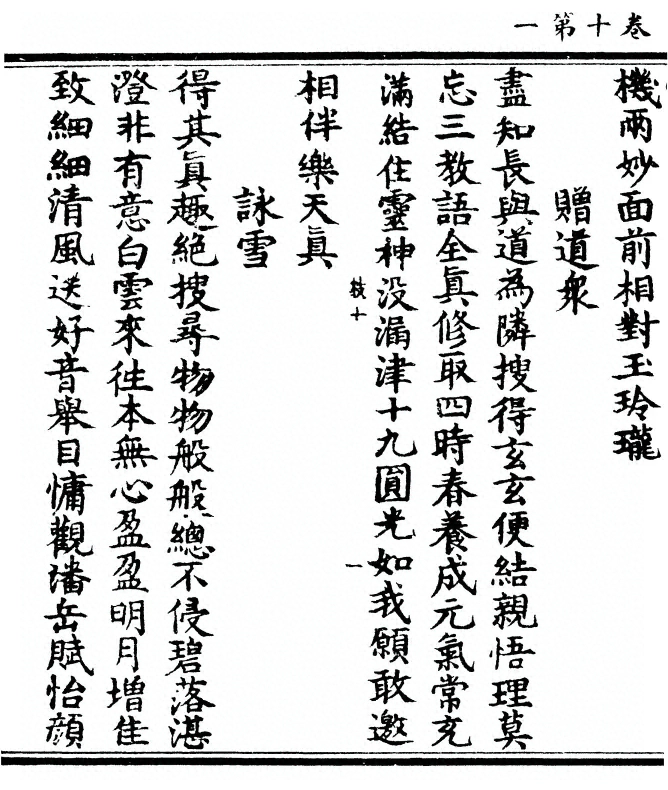 卷十第一
機兩妙面前相對玉玲瓏
贈道衆
盡知長與道為隣搜得玄玄便結親悟理莫
忘三教語全眞修取四時春養成元氣常充
滿結住靈神没漏津十九圓光如我願敢邀
技十
一
相伴樂天眞
詠雪
得其眞趣絕搜尋物物般般總不侵碧落湛
澄非有意白雲來往本無心盈盈明月增佳
致細細清風送好音舉目慵觀潘岳賦怡顔